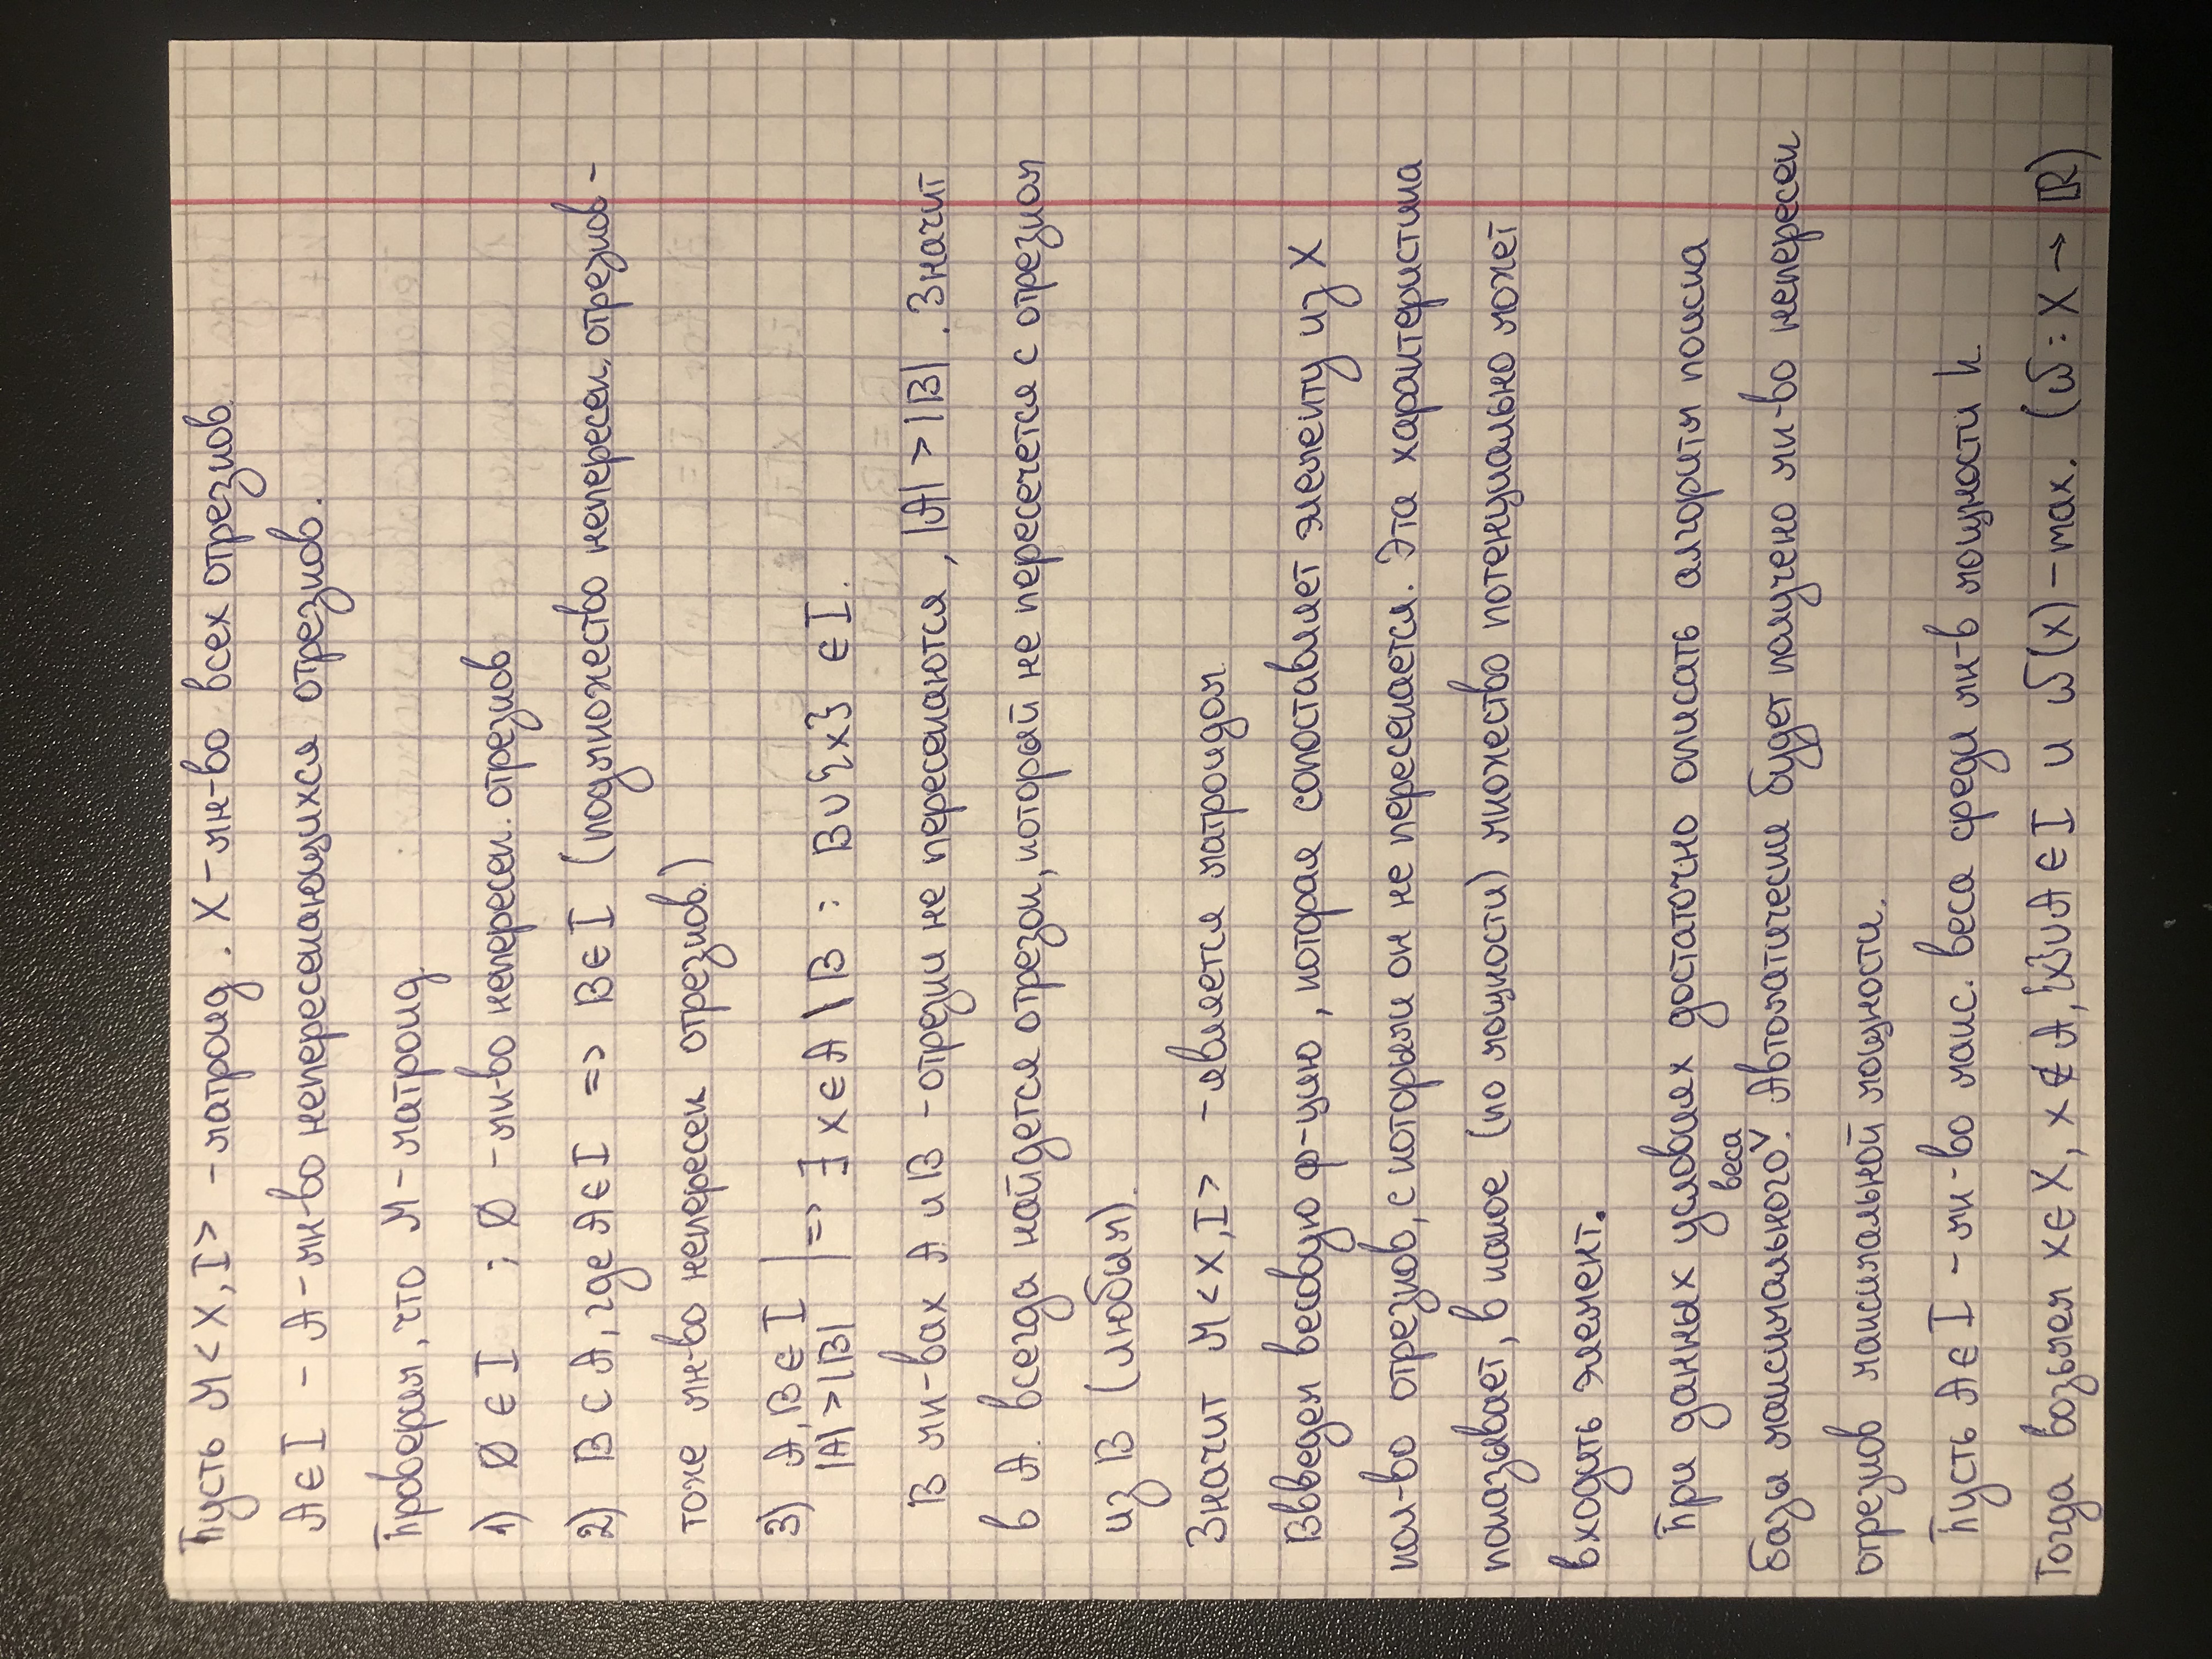 Пусть M<X, I> - матроид. X - мн-во всех отрезков.
A ∈ I - A - мн-во непересекающихся отрезков.
Проверим, что M - матроид
1) Ø ∈ I ; Ø - мн-во непересек. отрезков
2) B ⊂ A, где A ∈ I => B ∈ I (подмножество непересек. отрезков -
тоже мн-во непересек отрезков.)
3) A, B ∈ I
|A| > |B| | => ∃ x ∈ A \ B : B ∪ {x} ∈ I.
В мн-вах A и B - отрезки не пересекаются, |A| > |B|. Значит
в A. всегда найдется отрезок, который не пересечется с отрезком
из B (любым).
Значит M<X, I> - является матроидом.
Ввведем весовую ф-цию, которая сопоставляет элементу из X
кол-во отрезков, с которыми он не пересекается. Эта характеристика
показывает, в какое (по мощности) множество потенциально может
входить элемент.
При данных условиях достаточно описать алгоритм поиска
базы максимального веса. Автоматически будет получено мн-во непересек
отрезков максимальной мощности.
Пусть A ∈ I - мн-во макс. веса среди мн-в мощности k.
Тогда возьмем x ∈ X, x ∉ A, {x} ∪ A ∈ I и ω(x) - max. (ω : X → ℝ)